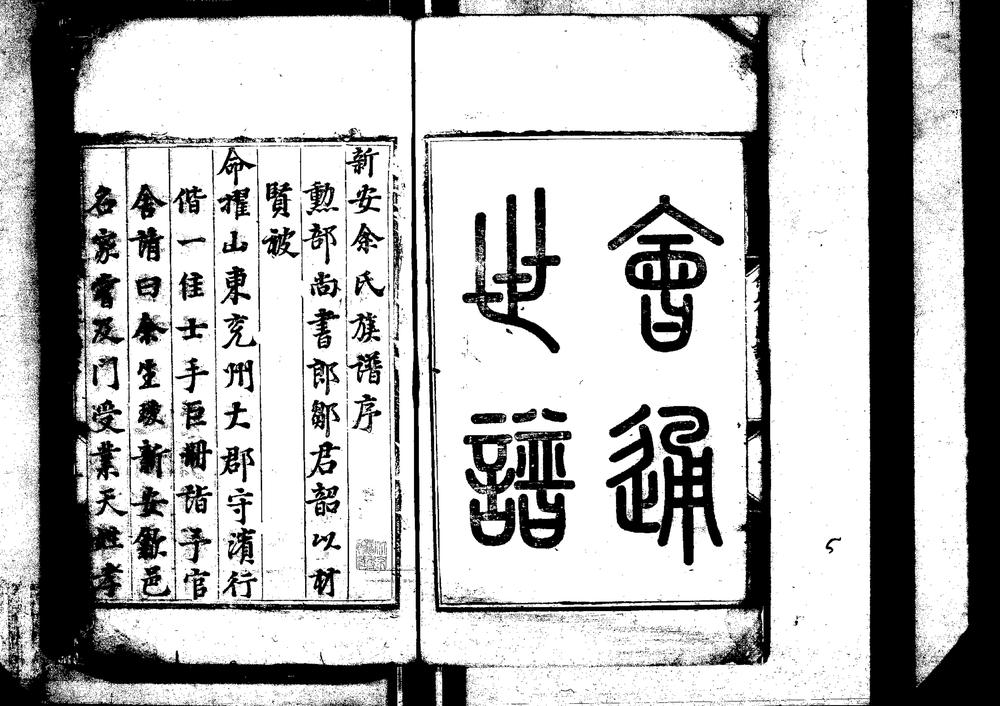 會通
世譜
新安余氏族譜序
勲部尚書郎鄒君韶以材
賢被
命擢山東兖州大郡守濱行
偕一佳士手巨冊詣予官
舍請曰余生瓊新安歙邑
名家嘗及門受業天性孝